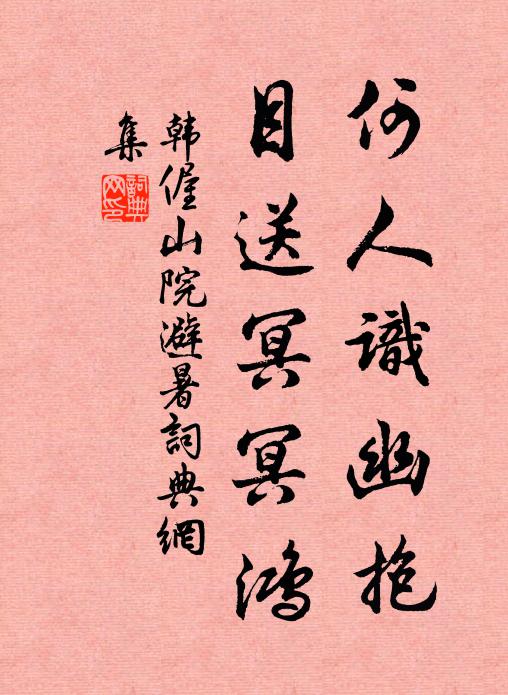 何人識幽抱
目送冥冥鸿
韩偓山院避暑詞典網
集
詞典
网印